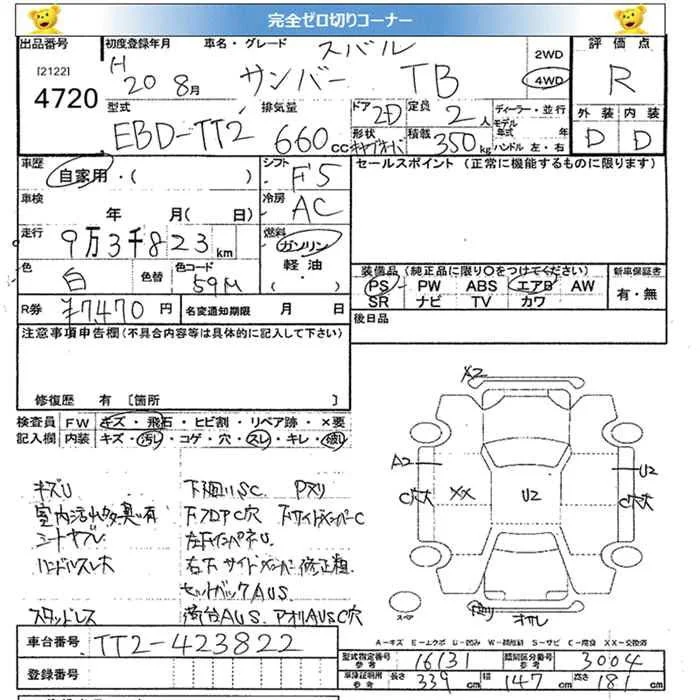 完全ゼロ切りコーナー
出品番号 初度登録年月 車名・グレード スバル 2WD 評価点
[2122] H 20 8月 サンバー TB 4WD R
4720 型式 排気量 ドア 2D 定員 2人 ディーラー・並行 外装 内装
EBD-TT2 660cc 形状 キャブオーバ 積載 350kg モデル年式 年 D D
ハンドル 左・右
車歴 自家用・( ) シフト F5 セールスポイント(正常に機能するものに限ります)
車検 年 月(日) 冷房 AC
走行 9万3千823km 燃料 ガソリン
軽油
・( )
色 白 色替 色コード 59M 装備品(純正品に限り○をつけてください) 新車保証書
PS PW ABS エアB AW 有・無
SR ナビ TV カワ
R券 ¥7,470円 名変通知期限 月 日 後日品
注意事項申告欄(不具合内容等は具体的に記入して下さい)
修復歴 有 [箇所
検査員 FW キズ・飛石・ヒビ割・リペア跡・×要
記入欄 内装 キズ・汚レ・コゲ・穴・スレ・キレ・破レ
A2
A2 U2
C穴大 XX U2 C穴大
キズU 下廻りSC Pヌリ
室内汚れ多臭い有 下フロアC穴 下サイドメンバーC
シートヤブレ 左下インパネU
ハンドルスレ大 右下サイドメンバー修正粗
セットバックAUS
スタッドレス 荷台AUS アオリAUSC穴
スペア
A-キズ E-エクボ U-凹み W-補修跡 S-サビ C-腐食 XX-交換済
車台番号 TT2-423822
登録番号
型式指定番号 参考 16131 類別区分番号 参考 3004
車庫証明用 参考 長さ 339cm 幅 147cm 高さ 181cm